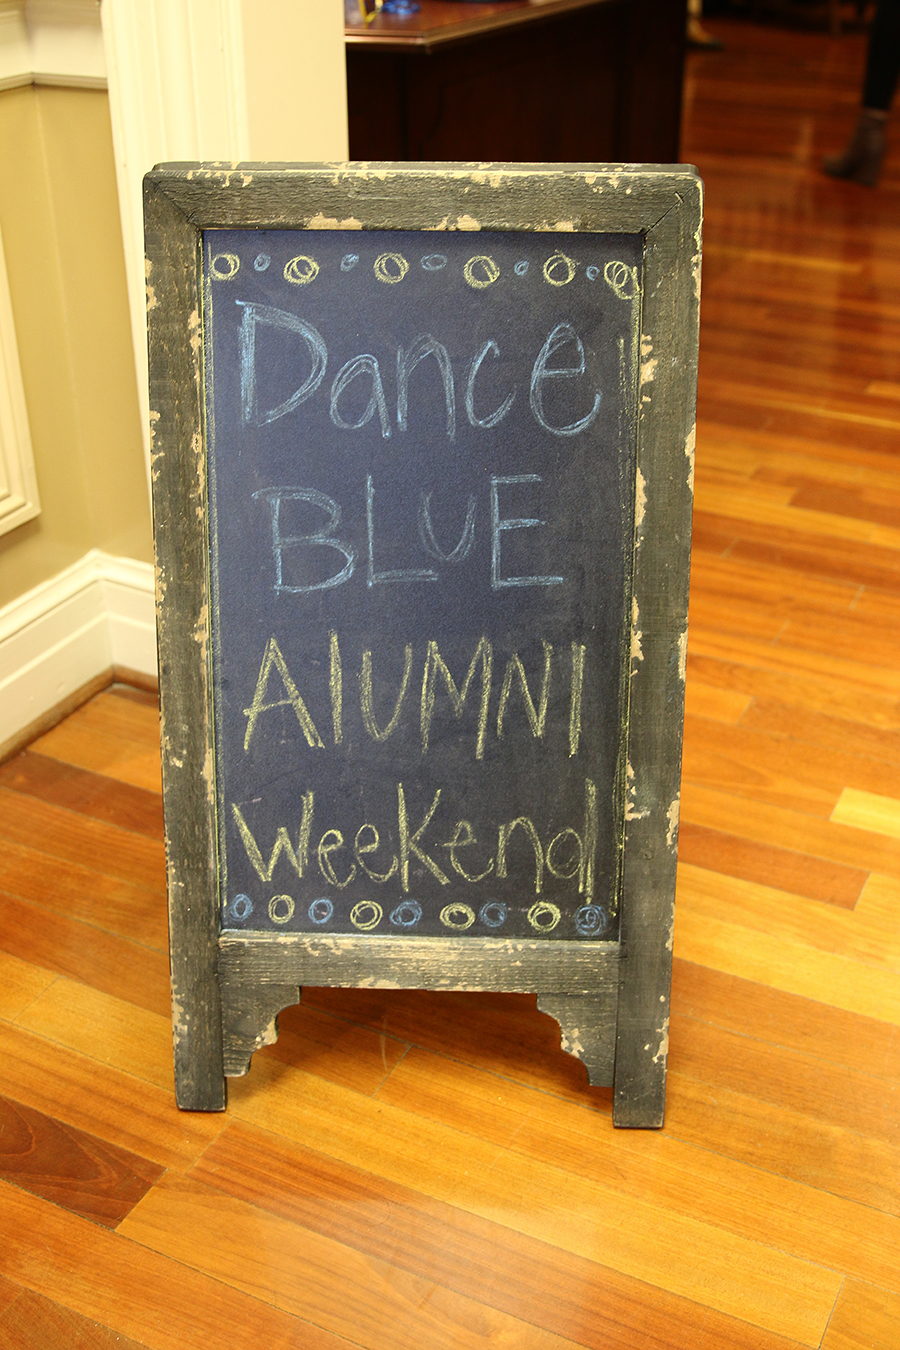 Dance
BLUE
AlUMNI
Weekend